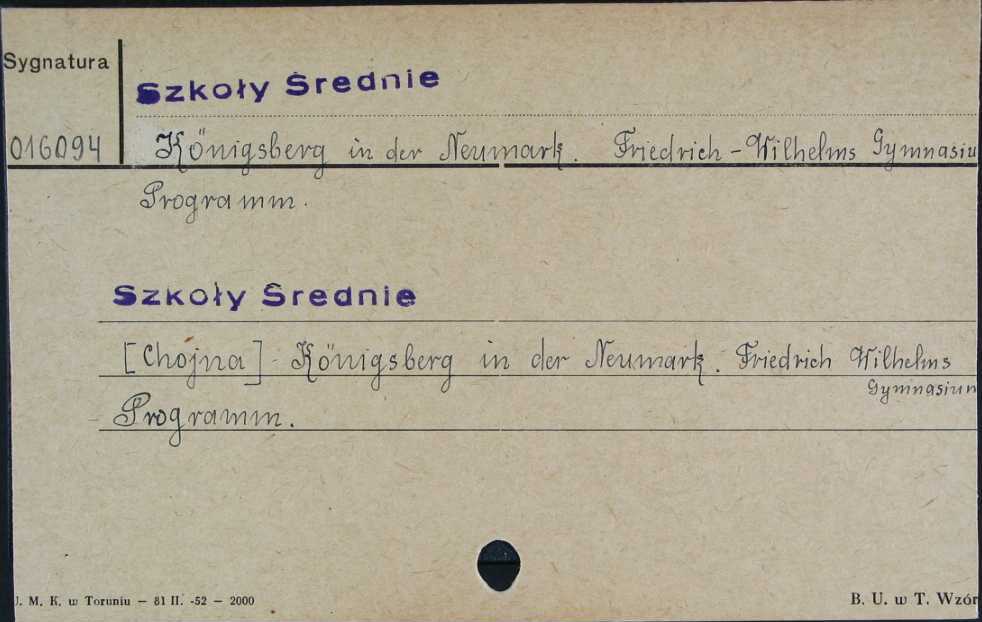 Sygnatura
Szkoły Średnie
016094 Königsberg in der Neumark. Friedrich-Wilhelms Gymnasiu
Programm.
Szkoły Średnie
[Chojna] Königsberg in der Neumark. Friedrich Wilhelms
Gymnasium
Programm.
U. M. K. w Toruniu – 81 II. -52 – 2000
B. U. w T. Wzór